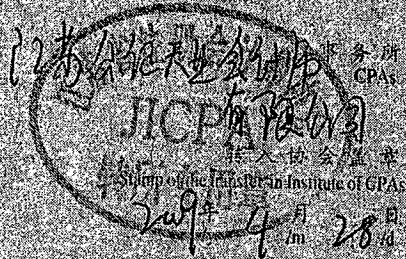 江苏公证天业会计师事务所
CPAs
有限公司
JICP
转入协会盖章
Stamp of the transfer-in Institute of CPAs
2009年 4月 28日
/y /m /d